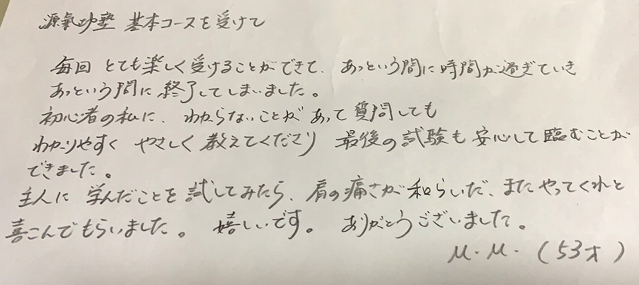 源氣功塾 基本コースを受けて
毎回 とても楽しく受けることができて、あっという間に時間が過ぎていき
あっという間に終了してしまいました。
初心者の私に、わからないことがあって質問しても
わかりやすく やさしく教えてくださり 最後の試験も安心して臨むことが
できました。
主人に 学んだことを試してみたら、肩の痛さが和らいだ、またやってくれと
喜こんでもらいました。 嬉しいです。 ありがとうございました。
M.M.(53才)